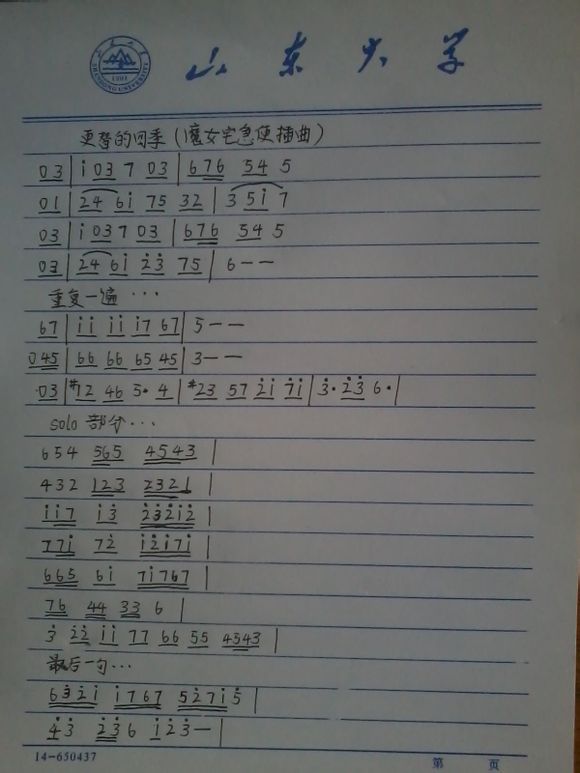 山东大学
SHANDONG UNIVERSITY
1901
更替的四季(魔女宅急便插曲)
03|i 03 7 03|676 54 5
01|24 6i 75 32|3 5i 7
03|i 03 7 03|676 54 5
03|24 6i 2̇3̇ 75|6——
重复一遍···
67|ii ii i7 67|5——
045|66 66 65 45|3——
·03|#12 46 5· 4|#23 57 2̇i 7i|3̇· 2̇3̇ 6·|
solo 部分···
654 565 4543|
432 123 2321|
ii7 i3̇ 2̇3̇2̇i2̇|
77i 72̇ i2̇i7i|
665 6i 7i767|
76 44 33 6|
3̇ 2̇2̇ ii 77 66 55 4543|
最后一句···
63̇2̇i i767 52̇7i5̇|
4̇3̇ 2̇3̇6 i2̇3̇—|
14-650437
第 页